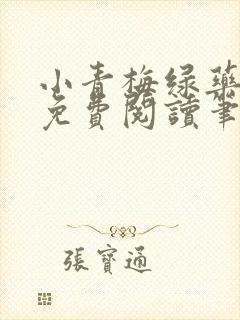 小青梅绿药
免費閱讀筆
張寶通